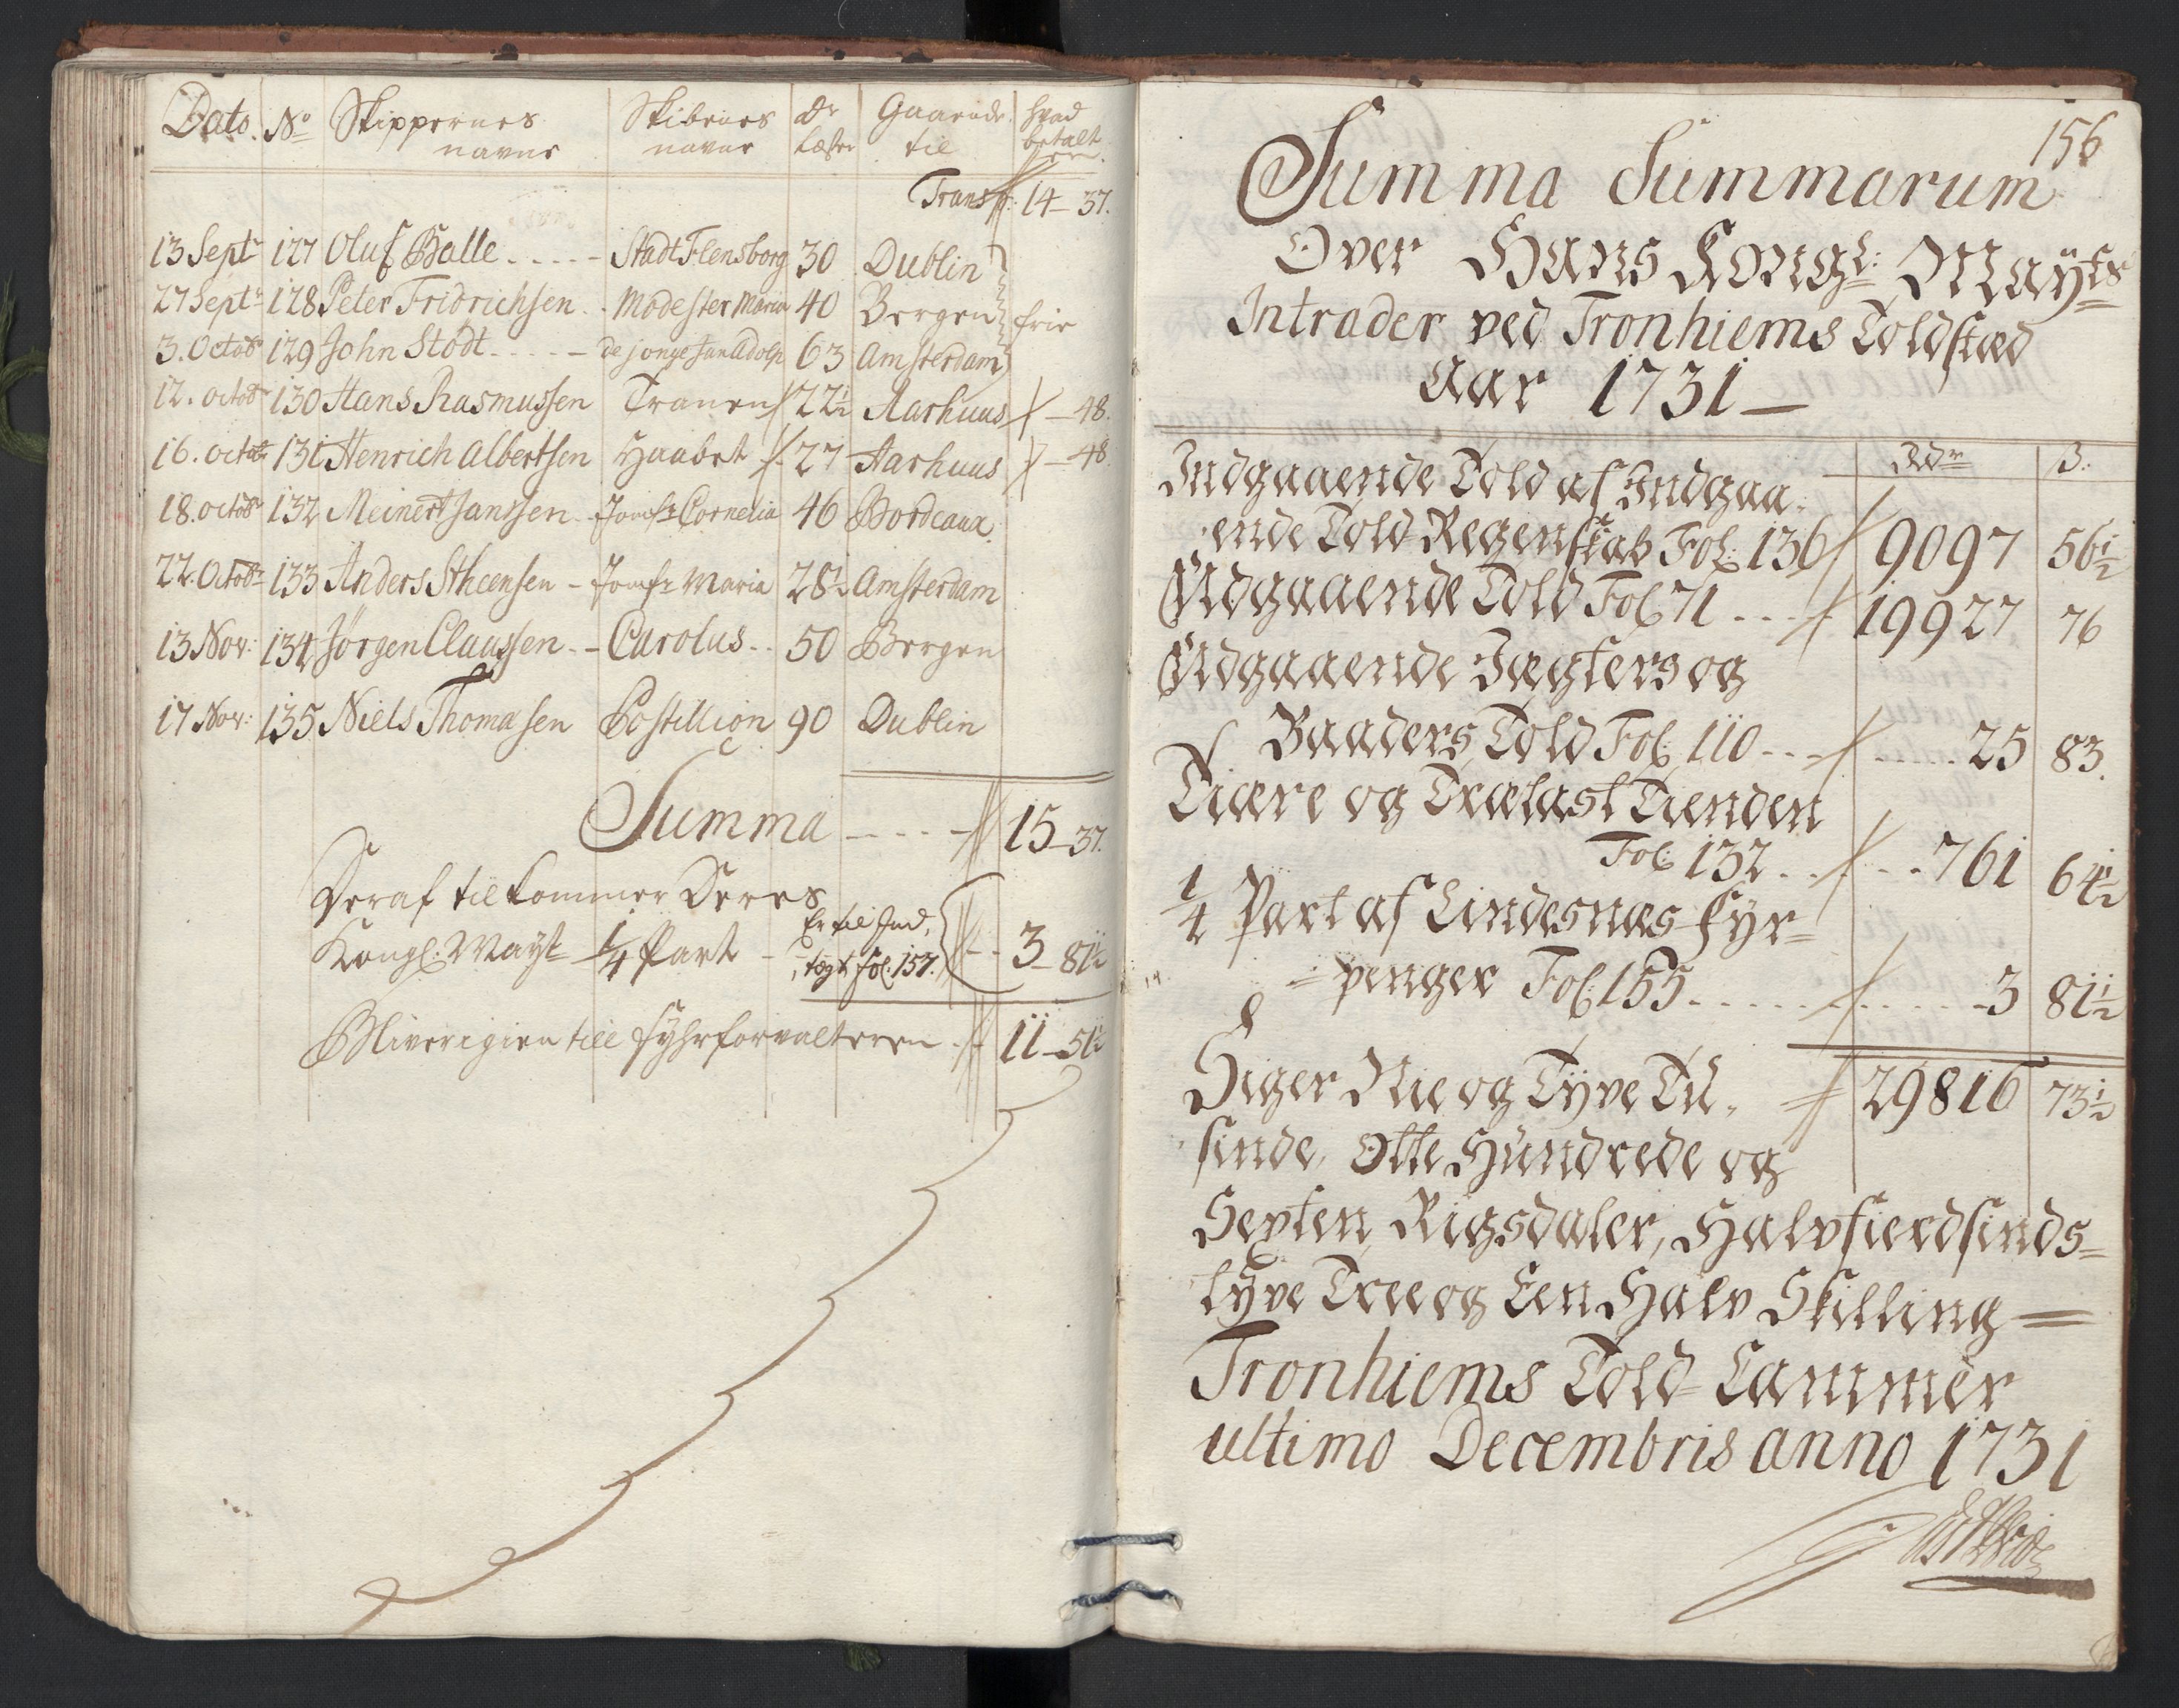 Dato. No Skippernes Skibenes Dr Gaaende hvad
navne navne Læster til betalt
Transp: 14 - 37.
13 Septr 127 Oluf Balle - - - - - Stadt Flensborg 30 Dublin
27 Septr 128 Peter Fridrichsen - Modester Maria 40 Bergen frie
3. Octobr 129 John Stodt - - - - - de jonge Jan Adolp 63 Amsterdam
12. octobr 130 Hans Rasmussen Tranen 22½ Aarhuus - 48.
16. octobr 131 Henrich Albertsen Haabet 27 Aarhuus - 48.
18. octobr 132 Meinert Janssen - Jomfr Cornelia 46 Bordeaux
22. Octobr 133 Anders Stheensen - Jomfr Maria 28½ Amsterdam
13 Nov: 134 Jörgen Claassen - - Carolus - - 50 Bergen
17 Nov: 135 Niels Thomasen Postillion 90 Dublin
Summa - - - - 15 - 37.
Deraf tilkommer Deres
Kongl: Mayt ¼ Part - Er til Ind,
,tegt fol. 157. 3 - 81½
Bliver igien till fyhrforvalteren - 11 - 51½
156
Summa Summarum
Over Hans Kongl: Mayts
Intrader ved Tronhiems Toldsted
Aar 1731 -
Rdr ß:
Indgaaende Told af Indgaa-
ende Told Regenskab Fol: 136 9097 56½
Udgaaende Told Fol: 71 - - - 19927 76
Udgaaende Jægters og
Baaders Told Fol: 110 - - - 25 83.
Tiære og Trælast Tienden
Fol: 132 - - - 761 64½
¼ Part af Lindesnæs Fyr=
=penger Fol: 155 - - - - - 3 81½
Siger Nie og Tyve Tu- 29816 73½
sinde, Otte Hundrede og
Sexten Rigsdaler, Halvfierdsinds=
tyve Tree og Een Halv Skilling =
Tronhiems Told Cammer
ultimo Decembris anno 1731